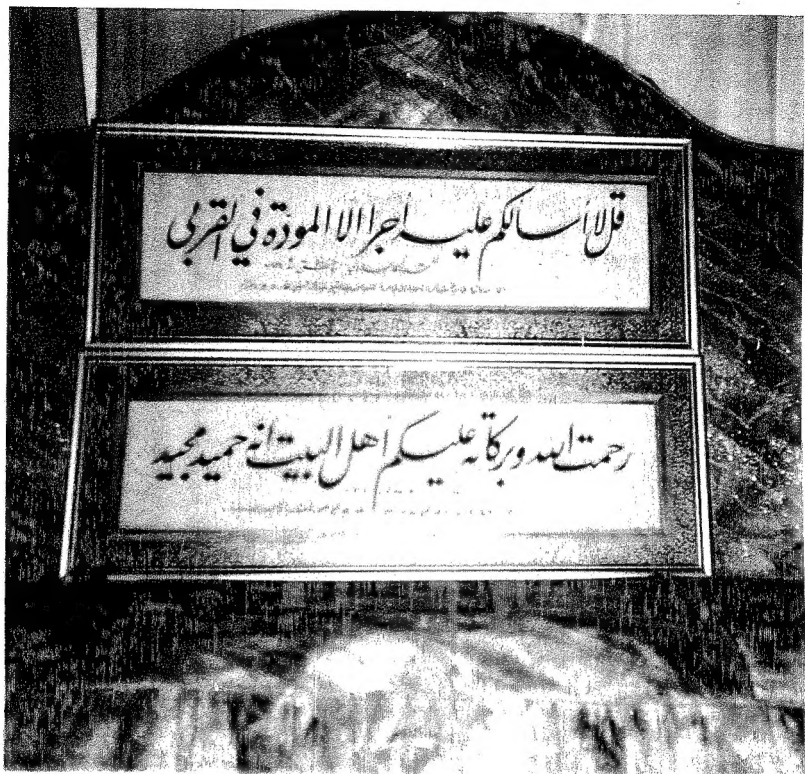 قل لا أسألكم عليه أجرا الا المودّة في القربى
رحمت الله وبركاته عليكم أهل البيت انه حميد مجيد